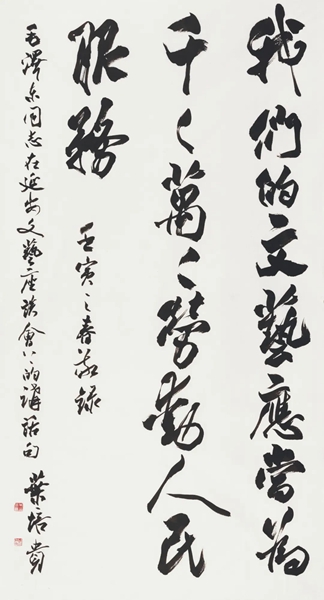 我們的文藝應當為
千々萬々勞動人民
服務
壬寅之春敬録
毛澤东同志在延安文藝座談會上的講話句
葉培貴